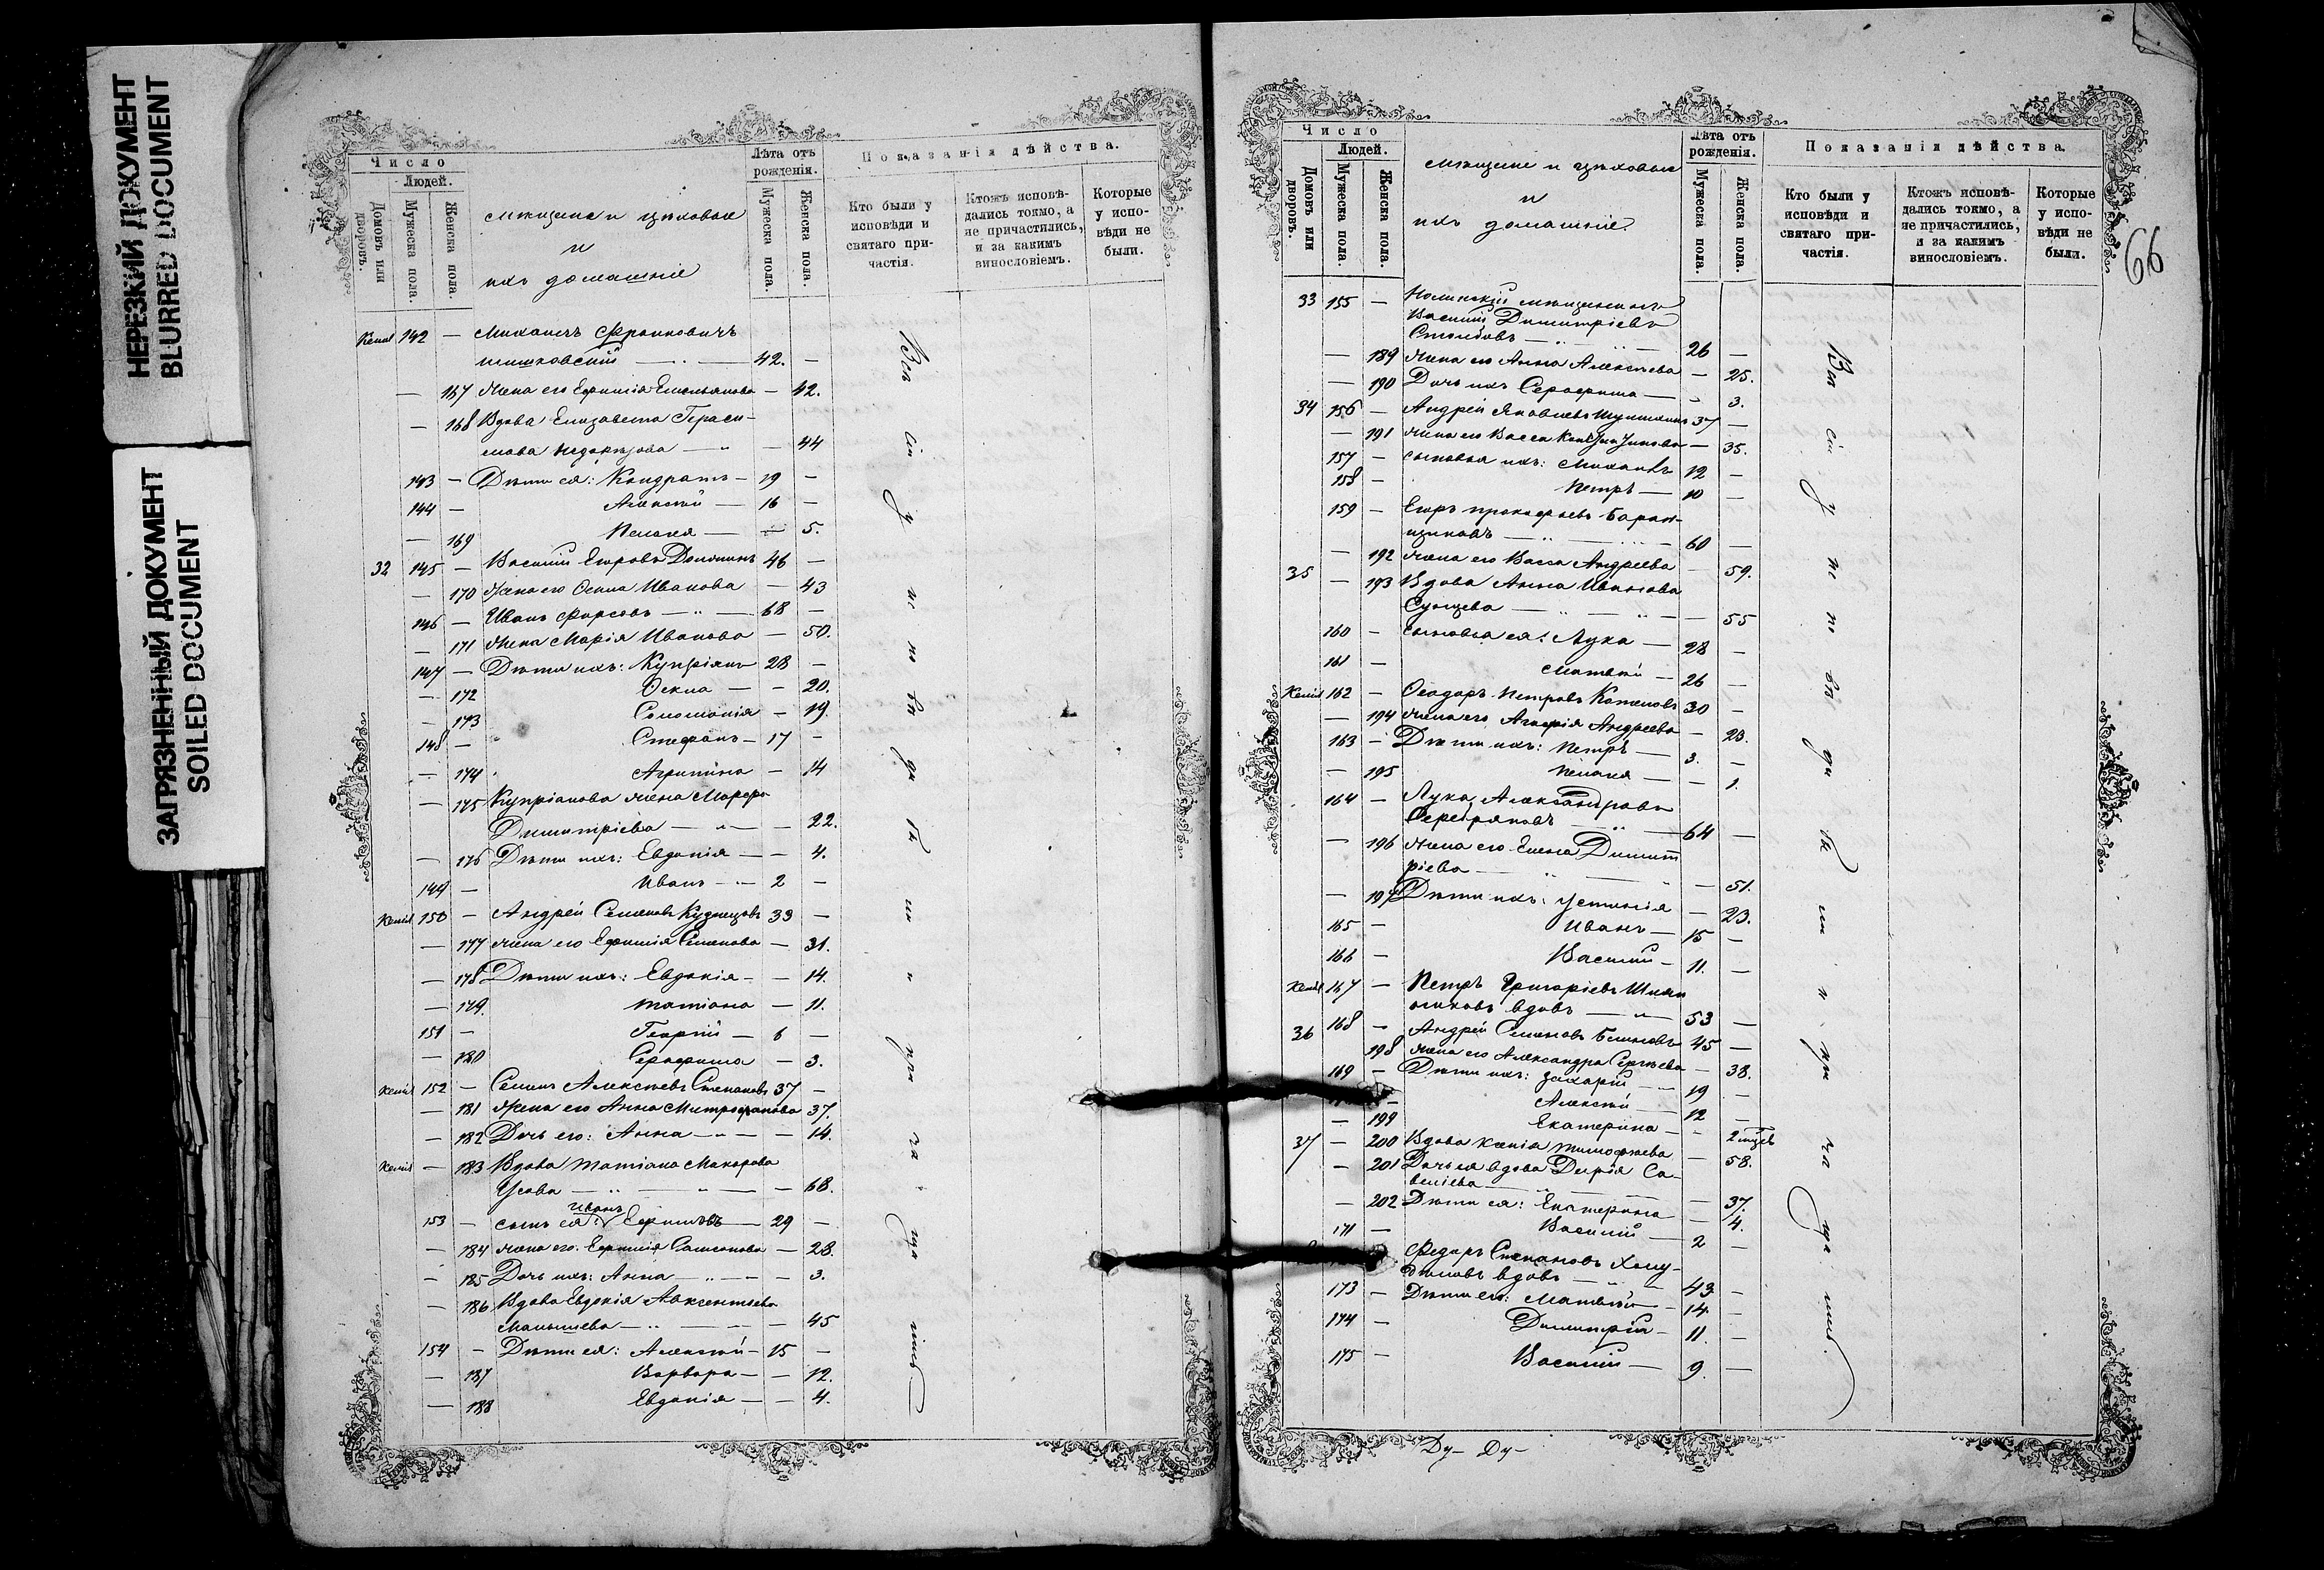 НЕРЕЗКИЙ ДОКУМЕНТ
BLURRED DOCUMENT
ЗАГРЯЗНЕННЫЙ ДОКУМЕНТ
SOILED DOCUMENT
Число
Людей.
Домовъ или дворовъ.
Мужеска пола.
Женска пола.
мѣщане и цеховые
и
ихъ домашніе
Лѣта отъ рожденія.
Мужеска пола.
Женска пола.
Показанія дѣйства.
Кто были у исповѣди и святаго причастія.
Ктожъ исповѣдались токмо, а не причастились, и за какимъ винословіемъ.
Которые у исповѣди не были.
142 — Михаилъ
42. —
— 167 Жена его Ефимія Емельянова — 42.
— 168 Вдова Елизавета Гераси-
мова — 44
143 — Дѣти ея: Кондратъ — 19 —
144 — Алексѣй — 16 —
— 169 Пелагея — 5.
32 145 — Василій Егоровъ 46 —
— 170 Жена его Иванова — 43
146 — Иванъ Фирсовъ — 68 —
— 171 Жена Марія Иванова — 50.
147 — Дѣти ихъ: Купріянъ 28 —
— 172 — 20.
— 173 Соломонія — 19.
148 — Стефанъ — 17 —
— 174 Агрипина — 14
— 175 Купріанова жена Марфа
Димитріева — 22.
— 176 Дѣти ихъ: Евдокія — 4.
149 — Иванъ — 2 —
150 — Андрей Семеновъ Кузнецовъ 33 —
— 177 Жена его Ефимія Семенова — 31.
— 178 Дѣти ихъ: Евдокія — — 14.
— 179. Татіана — 11.
151 — Георгій — 6 —
— 180 Серафима — 3.
152 — Семенъ Алексѣевъ Степановъ 37 —
— 181 Жена его Анна Митрофанова 37.
— 182 Дочь его: Анна — — 14.
— 183 Вдова Татіана Макарова
Усова — — 68.
153 — сынъ ея: Иванъ Ефимовъ — 29 —
— 184 Жена его Ефимія Самсонова — 28.
— 185 Дочь ихъ: Анна — — 3.
— 186 Вдова Евдокія Авксентьева
Малышева — — 45
154 — Дѣти ея: Алексѣй — 15 —
— 187 Варвара — — 12.
— 188 Евдокія — — 4.
Всѣ сіи у исповѣди и причащ
Число
Людей.
Домовъ или дворовъ.
Мужеска пола.
Женска пола.
мѣщане и цеховые
и
ихъ домашніе
Лѣта отъ рожденія.
Мужеска пола.
Женска пола.
Показанія дѣйства.
Кто были у исповѣди и святаго причастія.
Ктожъ исповѣдались токмо, а не причастились, и за какимъ винословіемъ.
Которые у исповѣди не были.
66
33 155 — мѣщанинъ
Василій Димитріевъ
Столбовъ — 26 —
— 189 Жена его Анна Алексѣева — 25.
— 190 Дочь ихъ Серафима — 3.
34 156 — Андрей Яковлевъ 37 —
— 191 Жена его Васса — 35.
157 — сыновья ихъ: Михаилъ 12 —
158 — Петръ — 10 —
159 — Егоръ Прокофьевъ Баран-
щиковъ — 60 —
— 192 Жена его Васса Андреева — 59.
35 — 193 Вдова Анна Иванова
— 55
160 — сыновья ея: Лука — 28 —
161 — Матвѣй — 26 —
162 — Ѳеодоръ Петровъ 30 —
— 194 Жена его Агафія Андреева — 23.
163 — Дѣти ихъ: Петръ — 3. —
— 195 Пелагея — — 1.
164 — Лука Александровъ
Серебряковъ — 64 —
— 196 Жена его Елена Димит
ріева — — 51.
— 197 Дѣти ихъ: Устинія — 23.
165 — Иванъ — 15 —
166 — Василій — 11. —
167 — Петръ Григорьевъ
вдовъ — 53 —
36 168 — Андрей Семеновъ 45 —
198 Жена его Александра Сергѣева — 38.
169 — Дѣти ихъ: Захарій — 19 —
— Алексѣй — 12 —
— 199 Екатерина —
37 — 200 Вдова Ксенія Тимофѣева — 58.
— 201 Дочь ея вдова Дарія Са-
веліева — 37.
— 202 Дѣти ея: Екатерина — 4.
171 — Василій — 2 —
Федоръ Степановъ
вдовъ — 43 —
173 — Дѣти его: Матвѣй — 14 —
174 — Димитрій — 11. —
175 — Василій — 9. —
Всѣ сіи у исповѣди и причащ
Ду- Ду-